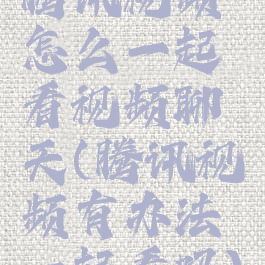 腾讯视频
怎么一起
看视频聊
天(腾讯视
频有办法
一起看吗)